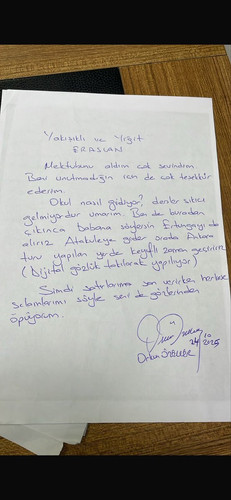 Yakışıklı ve Yiğit
ERASLAN
Mektubunu aldım çok sevindim.
Beni unutmadığın için de çok teşekkür
ederim.
Okul nasıl gidiyor? dersler sıkıcı
gelmiyordur umarım. Ben de buradan
çıkınca babana söylersin Ertungayı da
alırız Atakuleye gider orada Ankara
turu yapılan yerde keyifli zaman geçiririz
(Dijital gözlük takılarak yapılıyor)
Şimdi satırlarıma son verirken herkese
selamlarımı söyle seni de gözlerinden
öpüyorum.
24/10
2025